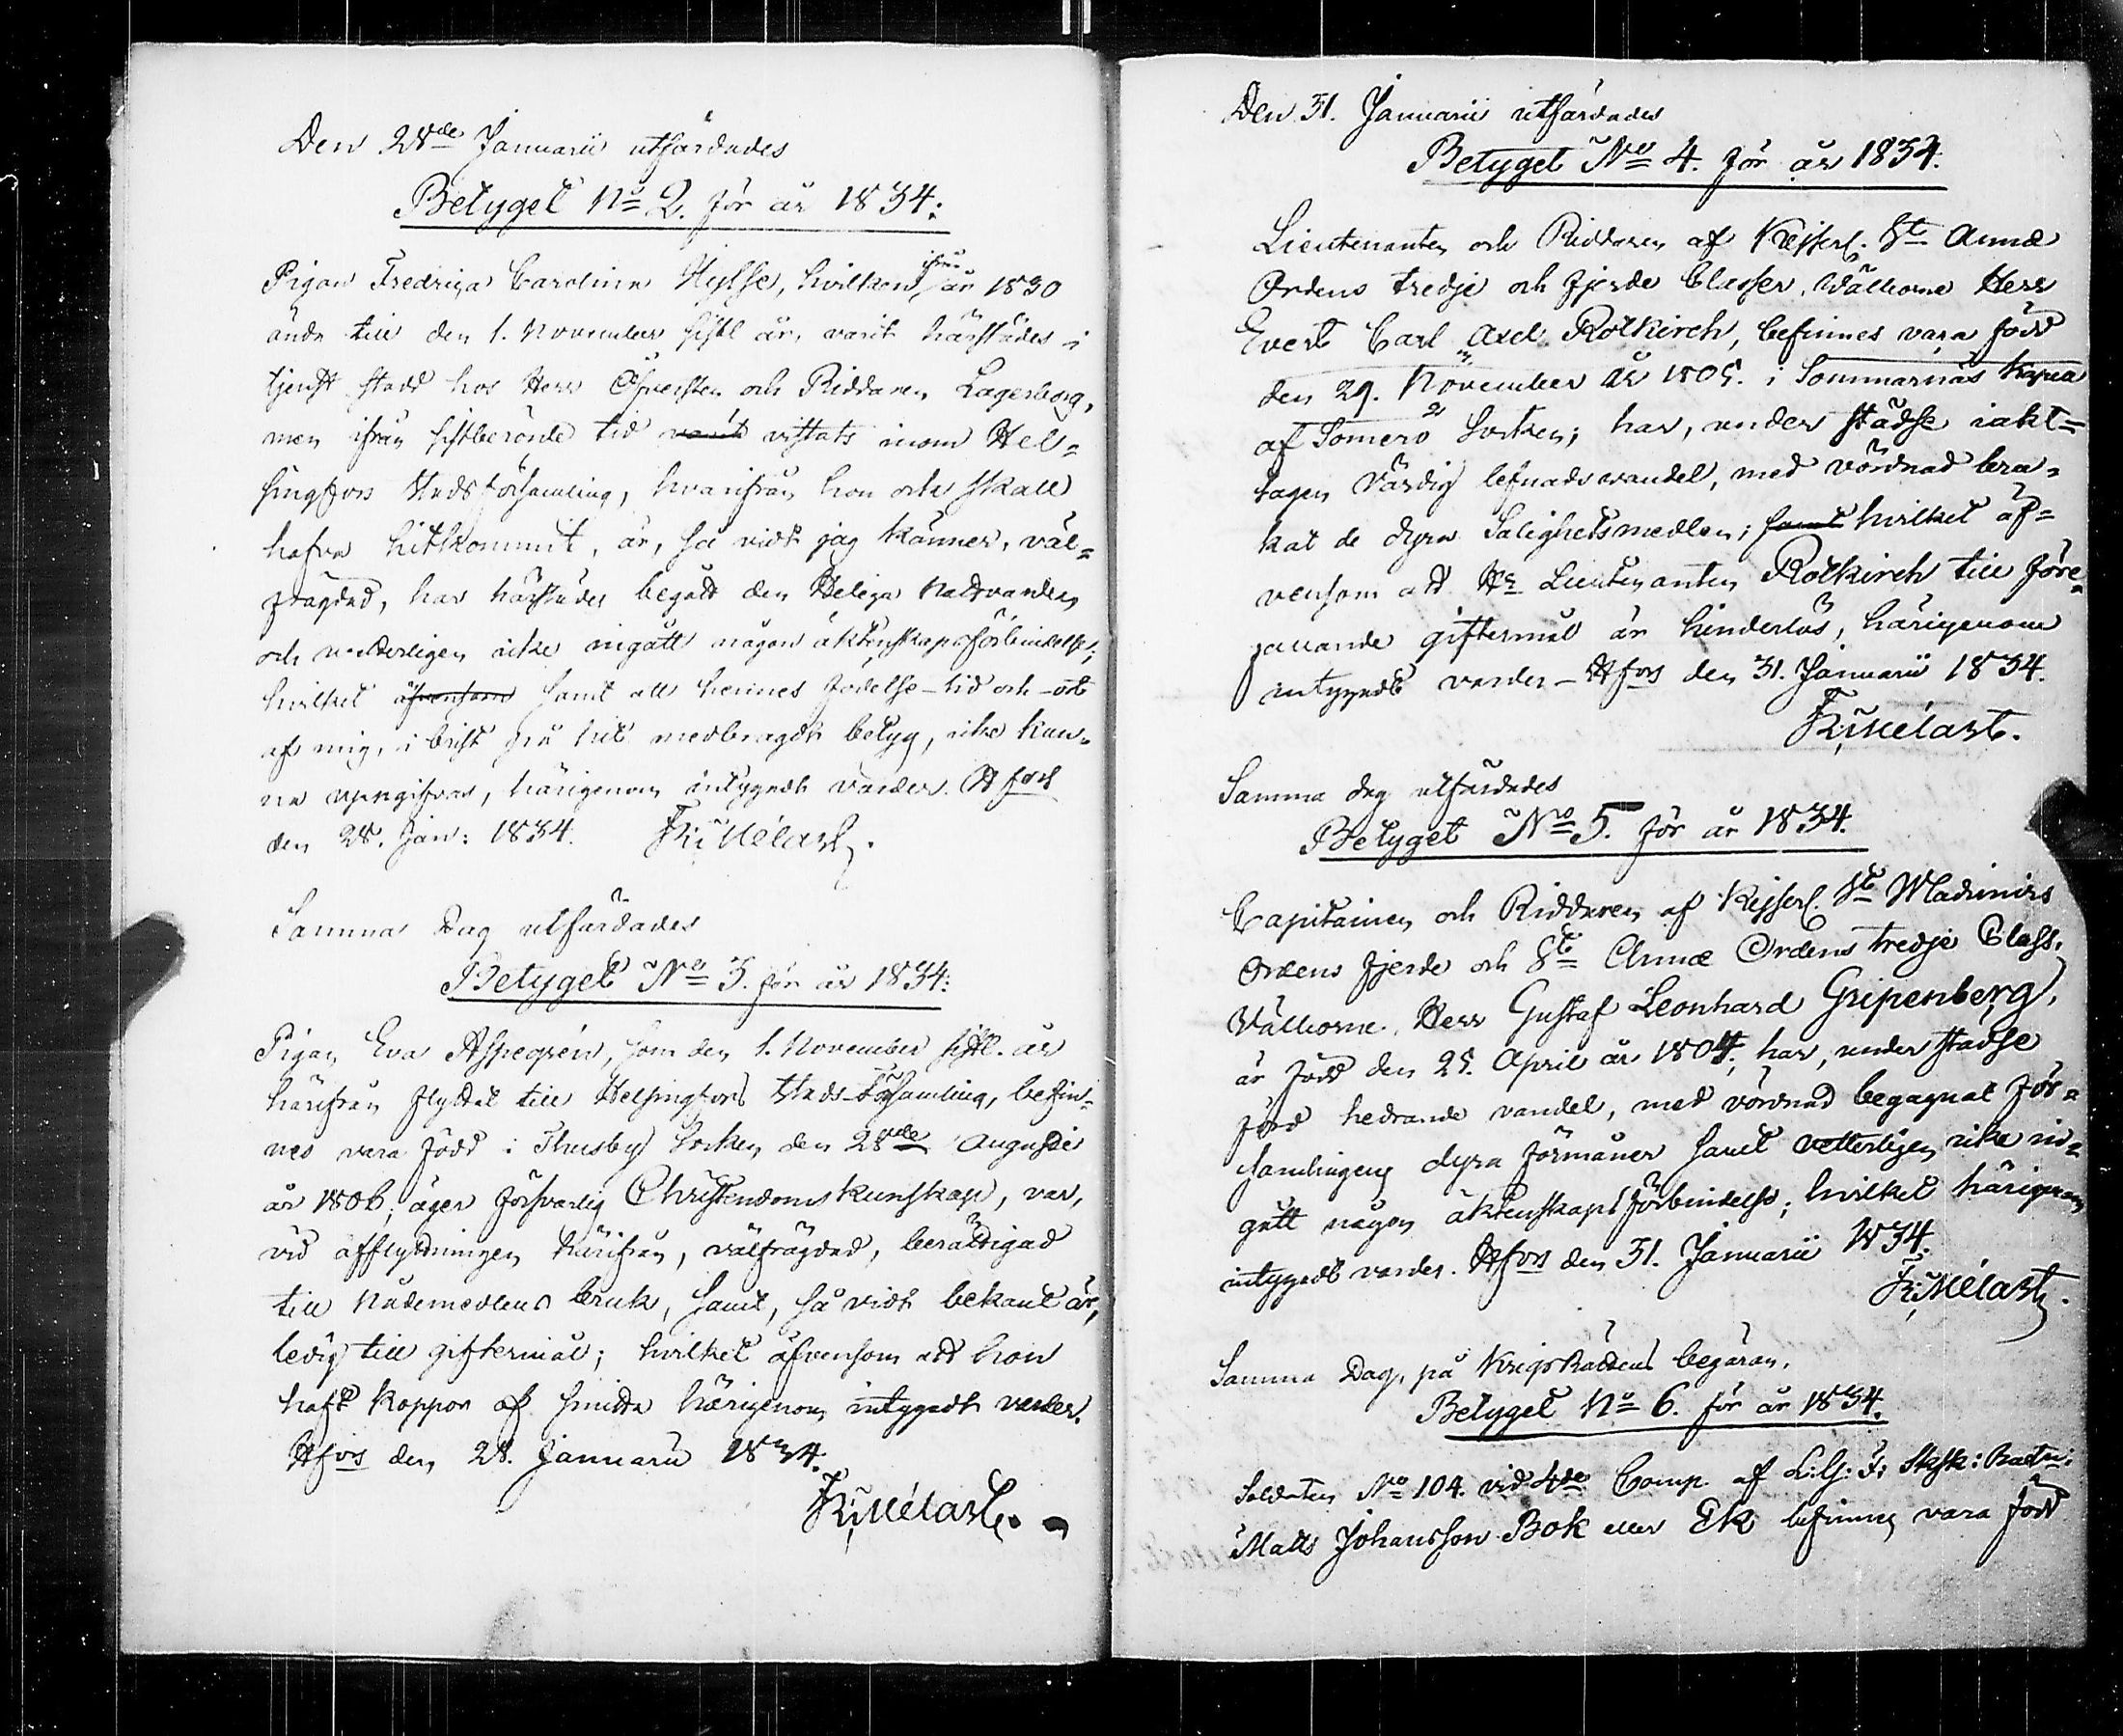 Den 28de Januarii utfärdades
Betyget No 2. för år 1834:
Pigan Fredrica Carolina Hylse, hvilken, ifrån år 1830
ända till den 1. November sistl. år, varit härstädes i
tjenst stadd hos Herr Öfversten och Riddaren Lagerborg,
men ifrån sistberörde tid varit vistats inom Hel=
singfors Stadsförsamling, hvarifrån hon och skall
hafva hitkommit, är, så vidt jag känner, väl=
frägdad, har härstädes begått den Heliga Nattvarden
och vetterligen icke ingått någon äktenskapsförbindelse;
hvilket äfvensom samt att hennes födelse-tid och -ort
af mig, i brist på hit medbragdt betyg, icke kun=
na uppgifvas, härigenom intygadt varder. Hfors
den 28. Jan: 1834. Fr: Mélart.
Samma Dag utfärdades
Betyget No 3. för år 1834:
Pigan Eva Aspegrén, som den 1. November sistl. år
härifrån flyttat till Helsingfors Stads-Församling, befin=
nes vara född i Thusby Socken den 28de Augusti
år 1806; äger försvarlig Christendomskunskap, var,
vid afflyttningen härifrån, välfrägdad, berättigad
till Nådemedlens bruk, samt, så vidt bekant är,
ledig till giftermål; hvilket äfvensom att hon
haft koppor af smitta härigenom intygadt varder.
Hfors den 28. Januarii 1834.
Fr: Mélart.
Den 31. Januarii utfärdades
Betyget No 4. för år 1834.
Lieutenanten och Riddaren af Kejserl. St. Annæ
Ordens tredje och fjerde Classer, Välborne Herr
Evert Carl Axel Rotkirch, befinnes vara född
den 29. November år 1805. i Sommarnäs Kapell
af Somero Socken; har, under städse iakt=
tagen värdig lefnadsvandel, med vördnad bru=
kat de dyra Salighetsmedlen; samt hvilket äf=
vensom att Hr Lieutenanten Rotkirch till före=
gavande giftermål är hinderlös, härigenom
intygadt varder- Hfors den 31. Januarii 1834.
Fr: Mélart.
Samma dag utfärdades
Betyget No 5. för år 1834.
Capitainen och Riddaren af Kejserl. St. Wladimirs
Ordens fjerde och St. Annæ Ordens tredje Class.
Välborne Herr Gustaf Leonhard Gripenberg,
är född den 25. April år 1804; har, under städse
förd hedrande vandel, med vördnad begagnat För=
samlingens dyra förmåner samt vetterligen icke in=
gått någon äktenskapsförbindelse; hvilket härigenom
intygadt varder. Hfors den 31. Januarii 1834.
Fr: Mélart.
Samma Dag, på KrigsRättens begäran,
Betyget No 6. för år 1834.
Soldaten No 104. vid 4de Comp. af L: G: F: Sksk: Batn:
Matts Johansson Bok eller Ek befinnes vara född